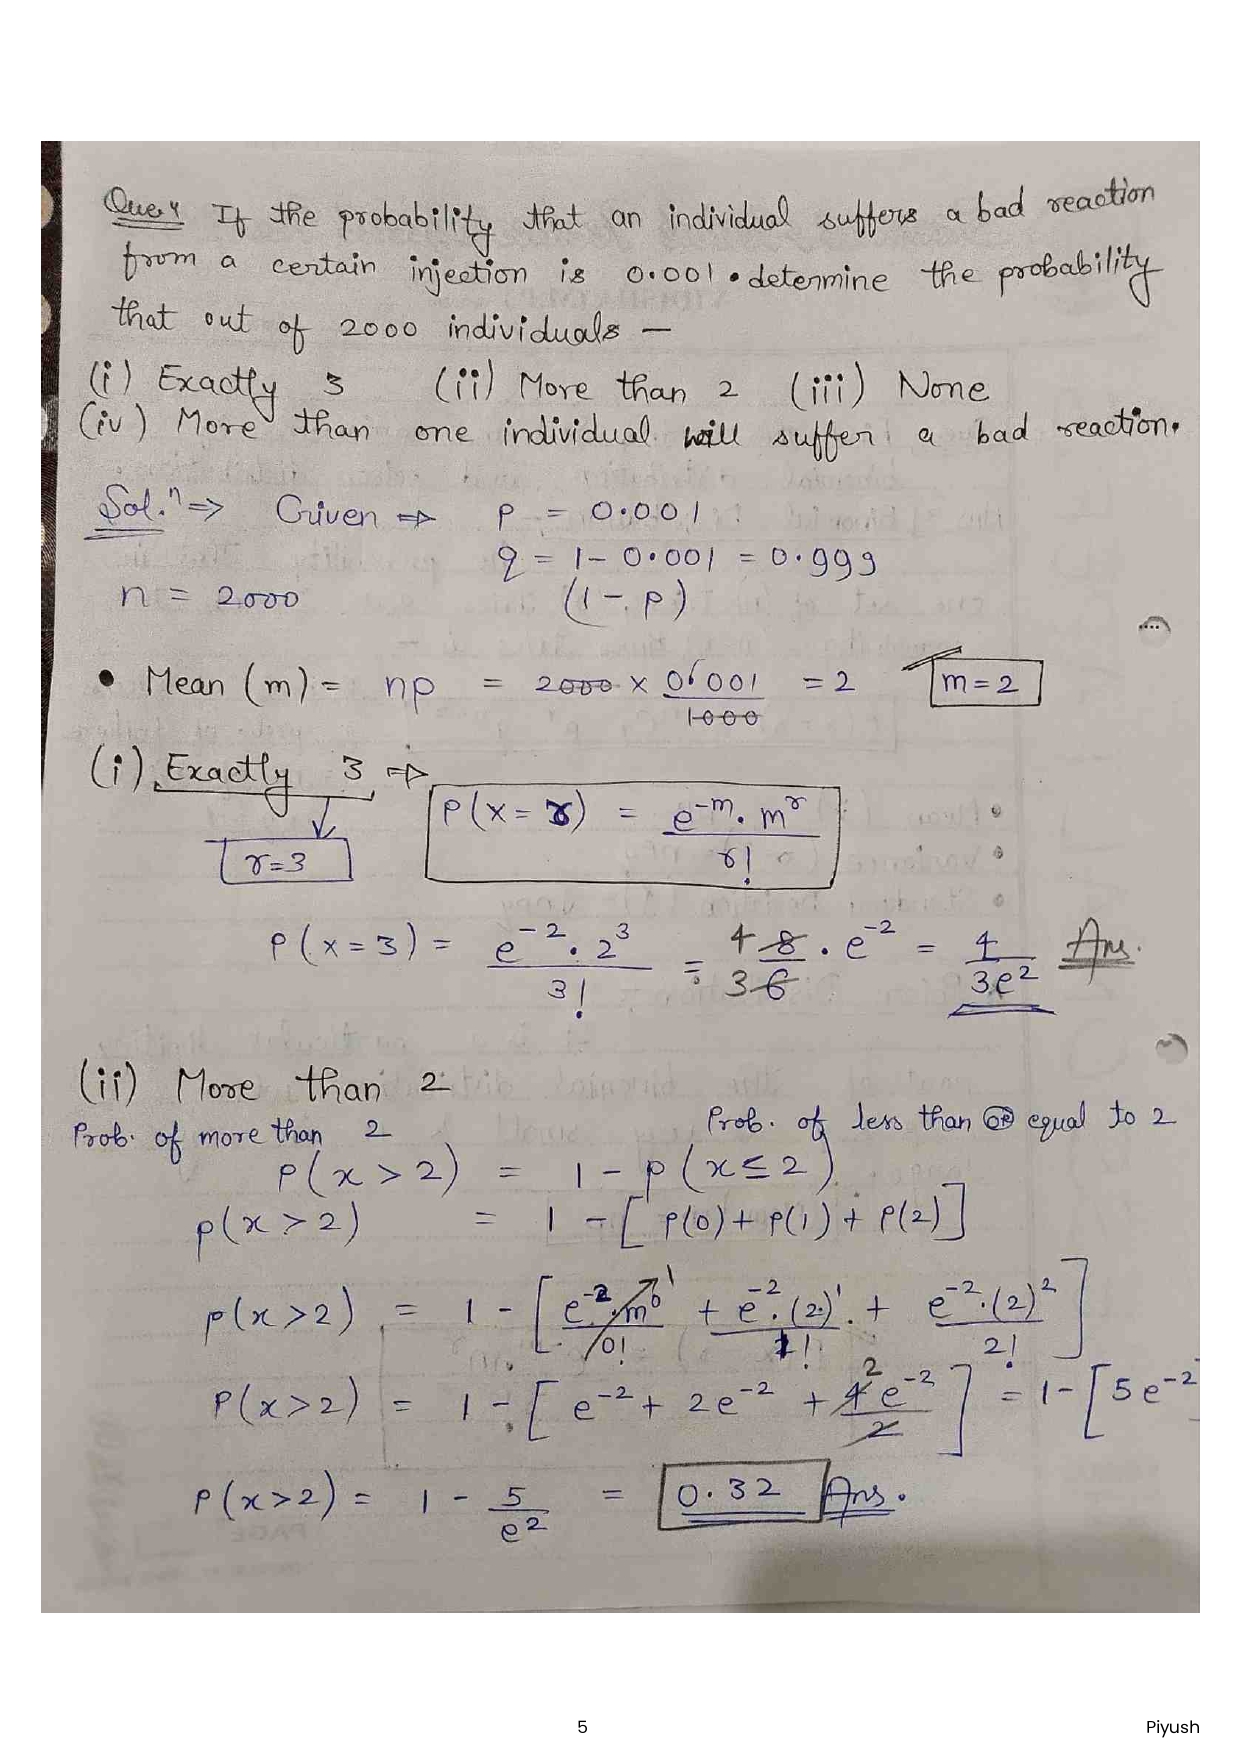 Que.4 If the probability that an individual suffers a bad reaction
from a certain injection is 0.001. determine the probability
that out of 2000 individuals —
(i) Exactly 3 (ii) More than 2 (iii) None
(iv) More than one individual will suffer a bad reaction.
Sol.ⁿ ⇒ Given ⇒ p = 0.001
q = 1 - 0.001 = 0.999
n = 2000 (1 - p)
• Mean (m) = np = 2000 × 0.001/1000 = 2 m = 2
(i) Exactly 3 ⇒
P(x = r) = e^-m . m^r / r!
r = 3
P(x = 3) = e^-2 . 2^3 / 3! = 4 8 / 3 6 . e^-2 = 4 / 3e^2 Ans.
(ii) More than 2
Prob. of more than 2 Prob. of less than or equal to 2
P(x > 2) = 1 - P(x ≤ 2)
P(x > 2) = 1 - [P(0) + P(1) + P(2)]
P(x > 2) = 1 - [e^-2 . m^0 / 0! 1 + e^-2 . (2)^1 / 1! + e^-2 . (2)^2 / 2!]
P(x > 2) = 1 - [e^-2 + 2e^-2 + 4 2 e^-2 / 2] = 1 - [5e^-2
P(x > 2) = 1 - 5 / e^2 = 0.32 Ans.
5 Piyush